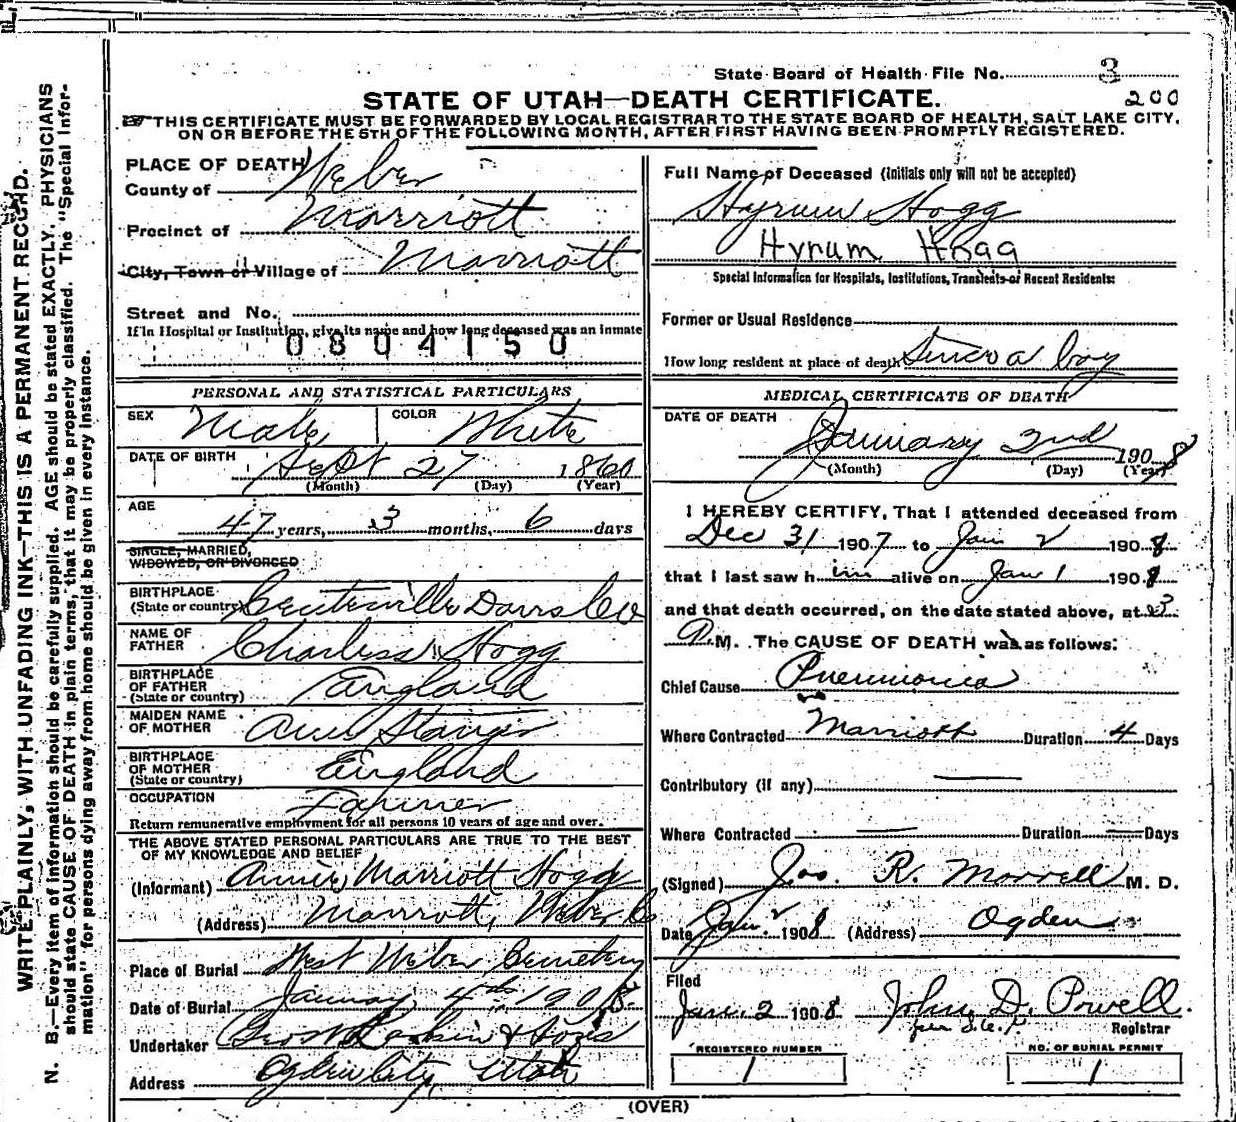 State Board of Health File No. 3
200
STATE OF UTAH—DEATH CERTIFICATE.
THIS CERTIFICATE MUST BE FORWARDED BY LOCAL REGISTRAR TO THE STATE BOARD OF HEALTH, SALT LAKE CITY,
ON OR BEFORE THE 5TH OF THE FOLLOWING MONTH, AFTER FIRST HAVING BEEN PROMPTLY REGISTERED.
WRITE PLAINLY, WITH UNFADING INK—THIS IS A PERMANENT RECORD.
N. B.—Every item of information should be carefully supplied. AGE should be stated EXACTLY. PHYSICIANS
should state CAUSE OF DEATH in plain terms, that it may be properly classified. The "Special Infor-
mation" for persons dying away from home should be given in every instance.
PLACE OF DEATH
County of Weber
Precinct of Marriott
City, Town or Village of Marriott
Street and No.
If in Hospital or Institution, give its name and how long deceased was an inmate
0804150
PERSONAL AND STATISTICAL PARTICULARS
SEX Male COLOR White
DATE OF BIRTH Sept 27 1860
(Month) (Day) (Year)
AGE 47 years, 3 months, 6 days
SINGLE, MARRIED,
WIDOWED, OR DIVORCED
BIRTHPLACE
(State or country) Centerville Davis Co
NAME OF
FATHER Charles Hogg
BIRTHPLACE
OF FATHER
(State or country) England
MAIDEN NAME
OF MOTHER Ann Stanger
BIRTHPLACE
OF MOTHER
(State or country) England
OCCUPATION Farmer
Return remunerative employment for all persons 10 years of age and over.
THE ABOVE STATED PERSONAL PARTICULARS ARE TRUE TO THE BEST
OF MY KNOWLEDGE AND BELIEF
(Informant) Annie Marriott Hogg
(Address) Marriott, Weber Co
Place of Burial West Weber Cemetery
Date of Burial January 4th 1908
Undertaker Geo W Larkin & Sons
Address Ogden City, Utah
Full Name of Deceased (Initials only will not be accepted)
Hyrum Hogg
Hyrum Hogg
Special Information for Hospitals, Institutions, Transients or Recent Residents:
Former or Usual Residence
How long resident at place of death Since a boy
MEDICAL CERTIFICATE OF DEATH
DATE OF DEATH
January 2nd 1908
(Month) (Day) (Year)
I HEREBY CERTIFY, That I attended deceased from
Dec 31 1907 to Jan 2 1908
that I last saw him alive on Jan 1 1908
and that death occurred, on the date stated above, at 3
M. The CAUSE OF DEATH was as follows:
Chief Cause Pneumonia
Where Contracted Marriott Duration 4 Days
Contributory (if any) —
Where Contracted — Duration — Days
(Signed) Jos. R. Morrell M. D.
Date Jan. 2 1908 (Address) Ogden
Filed
Jan. 2 1908 John D. Powell
Registrar
REGISTERED NUMBER
1
NO. OF BURIAL PERMIT
1
(OVER)